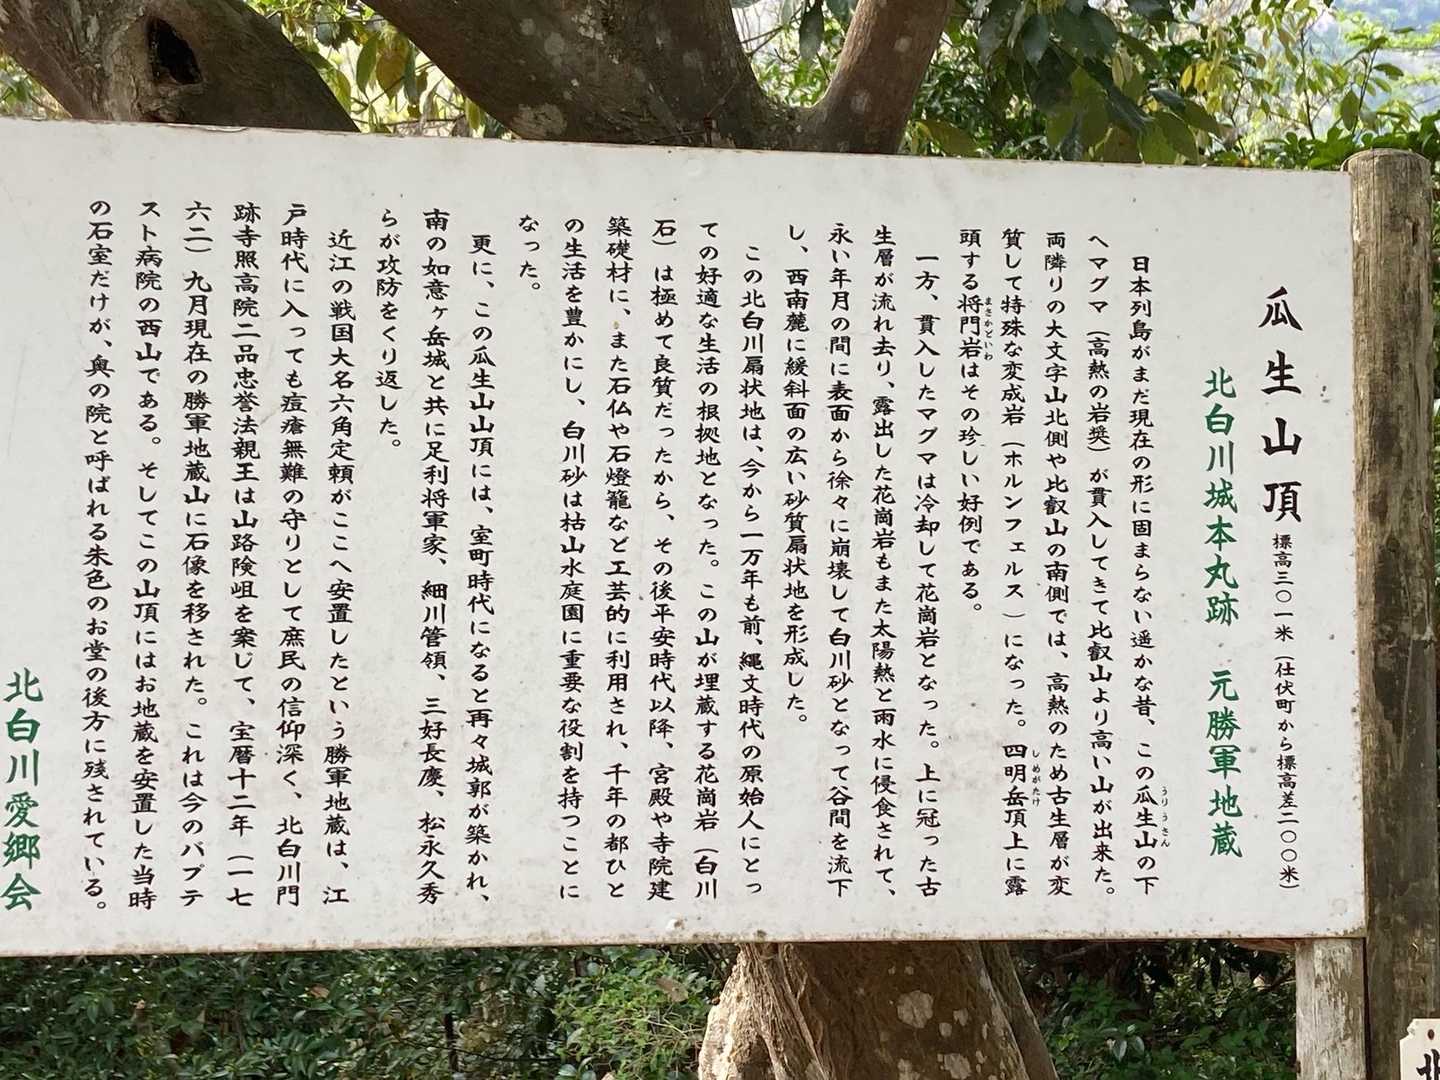 瓜生山頂 標高三〇一米(仕伏町から標高差二〇〇米)
北白川城本丸跡 元勝軍地蔵
日本列島がまだ現在の形に固まらない遥かな昔、この瓜生山の下
うりうさん
へマグマ(高熱の岩奬)が貫入してきて比叡山より高い山が出来た。
両隣りの大文字山北側や比叡山の南側では、高熱のため古生層が変
質して特殊な変成岩(ホルンフェルス)になった。四明岳頂上に露
しめがたけ
頭する将門岩はその珍しい好例である。
まさかどいわ
一方、貫入したマグマは冷却して花崗岩となった。上に冠った古
生層が流れ去り、露出した花崗岩もまた太陽熱と雨水に侵食されて、
永い年月の間に表面から徐々に崩壊して白川砂となって谷間を流下
し、西南麓に緩斜面の広い砂質扇状地を形成した。
この北白川扇状地は、今から一万年も前、縄文時代の原始人にとっ
ての好適な生活の根拠地となった。この山が埋蔵する花崗岩(白川
石)は極めて良質だったから、その後平安時代以降、宮殿や寺院建
築礎材に、また石仏や石燈籠など工芸的に利用され、千年の都ひと
の生活を豊かにし、白川砂は枯山水庭園に重要な役割を持つことに
なった。
更に、この瓜生山山頂には、室町時代になると再々城郭が築かれ、
南の如意ヶ岳城と共に足利将軍家、細川管領、三好長慶、松永久秀
らが攻防をくり返した。
近江の戦国大名六角定頼がここへ安置したという勝軍地蔵は、江
戸時代に入っても痘瘡無難の守りとして庶民の信仰深く、北白川門
跡寺照高院二品忠誉法親王は山路険岨を案じて、宝暦十二年(一七
六二)九月現在の勝軍地蔵山に石像を移された。これは今のバプテ
スト病院の西山である。そしてこの山頂にはお地蔵を安置した当時
の石室だけが、奥の院と呼ばれる朱色のお堂の後方に残されている。
北白川愛郷会
北